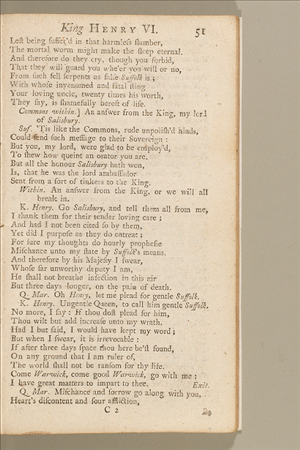 King HENRY VI. 51
Lest being suffer'd in that harmless slumber,
The mortal worm might make the sleep eternal.
And therefore do they cry, though you forbid,
That they will guard you whe'er you will or no,
From such fell serpents as false Suffolk is;
With whose invenomed and fatal sting
Your loving uncle, twenty times his worth,
They say, is shamefully bereft of life.
Commons within.] An answer from the King, my lord
of Salisbury.
Suf. 'Tis like the Commons, rude unpolish'd hinds,
Could send such message to their Sovereign:
But you, my lord, were glad to be employ'd,
To shew how queint an orator you are.
But all the honour Salisbury hath won,
Is, that he was the lord ambassador
Sent from a sort of tinkers to the King.
Within. An answer from the King, or we will all
break in.
K. Henry. Go Salisbury, and tell them all from me,
I thank them for their tender loving care;
And had I not been cited so by them,
Yet did I purpose as they do entreat;
For sure my thoughts do hourly prophesie
Mischance unto my state by Suffolk's means.
And therefore by his Majesty I swear,
Whose far unworthy deputy I am,
He shall not breathe infection in this air
But three days longer, on the pain of death.
Q. Mar. Oh Henry, let me plead for gentle Suffolk.
K. Henry. Ungentle Queen, to call him gentle Suffolk.
No more, I say: if thou dost plead for him,
Thou wilt but add increase unto my wrath.
Had I but said, I would have kept my word;
But when I swear, it is irrevocable:
If after three days space thou here be'st found,
On any ground that I am ruler of,
The world shall not be ransom for thy life.
Come Warwick, come good Warwick, go with me;
I have great matters to impart to thee. Exit.
Q. Mar. Mischance and sorrow go along with you,
Heart's discontent and sour affliction,
C 2